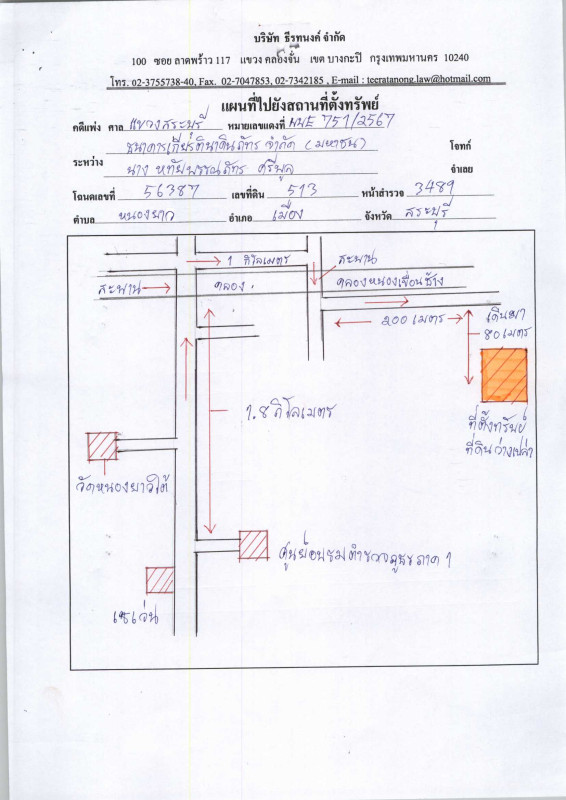 บริษัท ธีรทนงค์ จำกัด
100 ซอย ลาดพร้าว 117 แขวง คลองจั่น เขต บางกะปิ กรุงเทพมหานคร 10240
โทร. 02-3755738-40, Fax. 02-7047853, 02-7342185 , E-mail : teeratanong.law@hotmail.com
แผนที่ไปยังสถานที่ตั้งทรัพย์
คดีแพ่ง ศาล แขวงสระบุรี หมายเลขแดงที่ ผบE 751/2567
ธนาคารเกียรตินาคินภัทร จำกัด (มหาชน) โจทก์
ระหว่าง
นาง หทัยพรรณภัทร ศรีพูล จำเลย
โฉนดเลขที่ 56387 เลขที่ดิน 513 หน้าสำรวจ 3489
ตำบล หนองยาว อำเภอ เมือง จังหวัด สระบุรี
1 กิโลเมตร
สะพาน
สะพาน
คลอง
คลองหนองเขื่อนช้าง
200 เมตร
เดินเท้า
80 เมตร
1.8 กิโลเมตร
ที่ตั้งทรัพย์
ที่ดินว่างเปล่า
วัดหนองยาวใต้
ศูนย์อบรมตำรวจภูธรภาค 1
เซเว่น